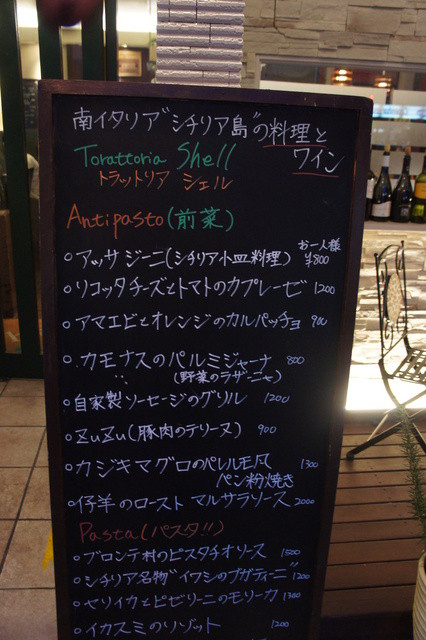 南イタリア"シチリア島"の料理と
ワイン
Torattoria Shell
トラットリア シェル
Antipasto(前菜)
お一人様
○アッサジーニ(シチリア小皿料理) ¥800
○リコッタチーズとトマトのカプレーゼ 1200
○アマエビとオレンジのカルパッチョ 900
○カモナスのパルミジャーナ 800
(野菜のラザーニャ)
○自家製ソーセージのグリル 1200
○ZuZu(豚肉のテリーヌ) 900
○カジキマグロのパレルモ風 1300
パン粉焼き
○仔羊のロースト マルサラソース 2000
Pasta(パスタ!!)
○ブロンテ村のピスタチオソース 1500
○シチリア名物"イワシのブガティーニ" 1200
○ヤリイカとピゼリーニのモリーカ 1300
○イカスミのリゾット 1200